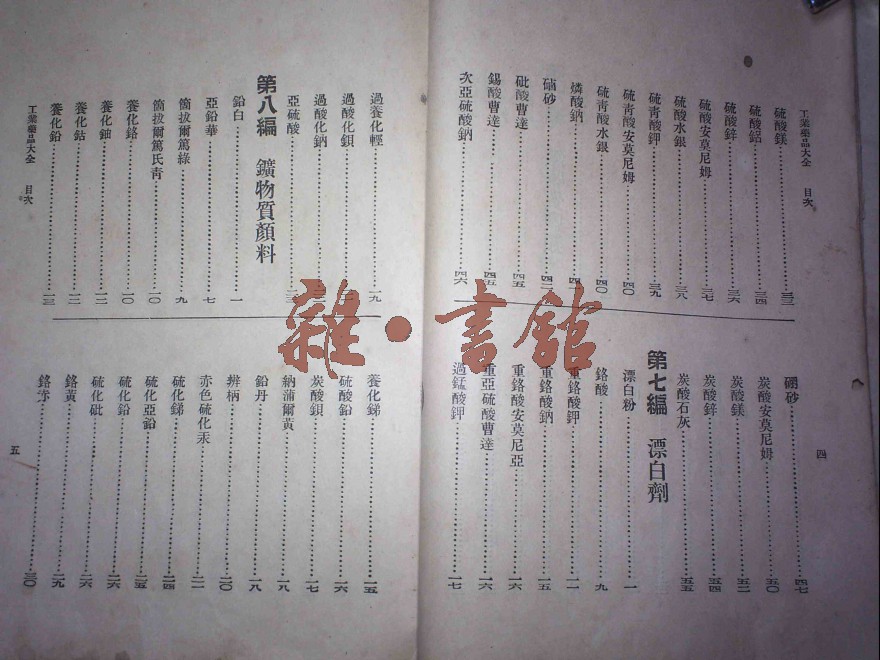 工業藥品大全 目次
四
硫酸鎂 三三
硫酸鋁 三四
硫酸鋅 三六
硫酸安莫尼姆 三七
硫酸水銀 三八
硫青酸鉀 三九
硫青酸安莫尼姆 四〇
硫青酸水銀 四〇
燐酸鈉
硇砂
砒酸曹達 四五
錫酸曹達 四五
次亞硫酸鈉 四六
硼砂 四七
炭酸安莫尼姆 五〇
炭酸鎂 五二
炭酸鋅 五四
炭酸石灰 五五
第七編 漂白劑
漂白粉 一
鉻酸 九
重鉻酸鉀 一一
重鉻酸鈉 一五
重鉻酸安莫尼亞 一六
重亞硫酸曹達 一六
過錳酸鉀 一七
過養化輕 一九
過酸化鋇
過酸化鈉
亞硫酸 二三
第八編 鑛物質顏料
鉛白 一
亞鉛華 七
箇拔爾篤綠 九
箇拔爾篤氏青 一〇
養化鉻 一〇
養化鈾 一二
養化鈷 一二
養化鉛 一三
工業藥品大全 目次
五
養化銻 一五
硫酸鉛 一六
炭酸鋇 一七
納蒲爾黃 一八
鉛丹 一八
辨柄 二〇
赤色硫化汞 二二
硫化銻 二四
硫化亞鉛 二五
硫化鉛 二六
硫化砒 二六
鉻黃 二九
鉻赤 三〇
雜·書館